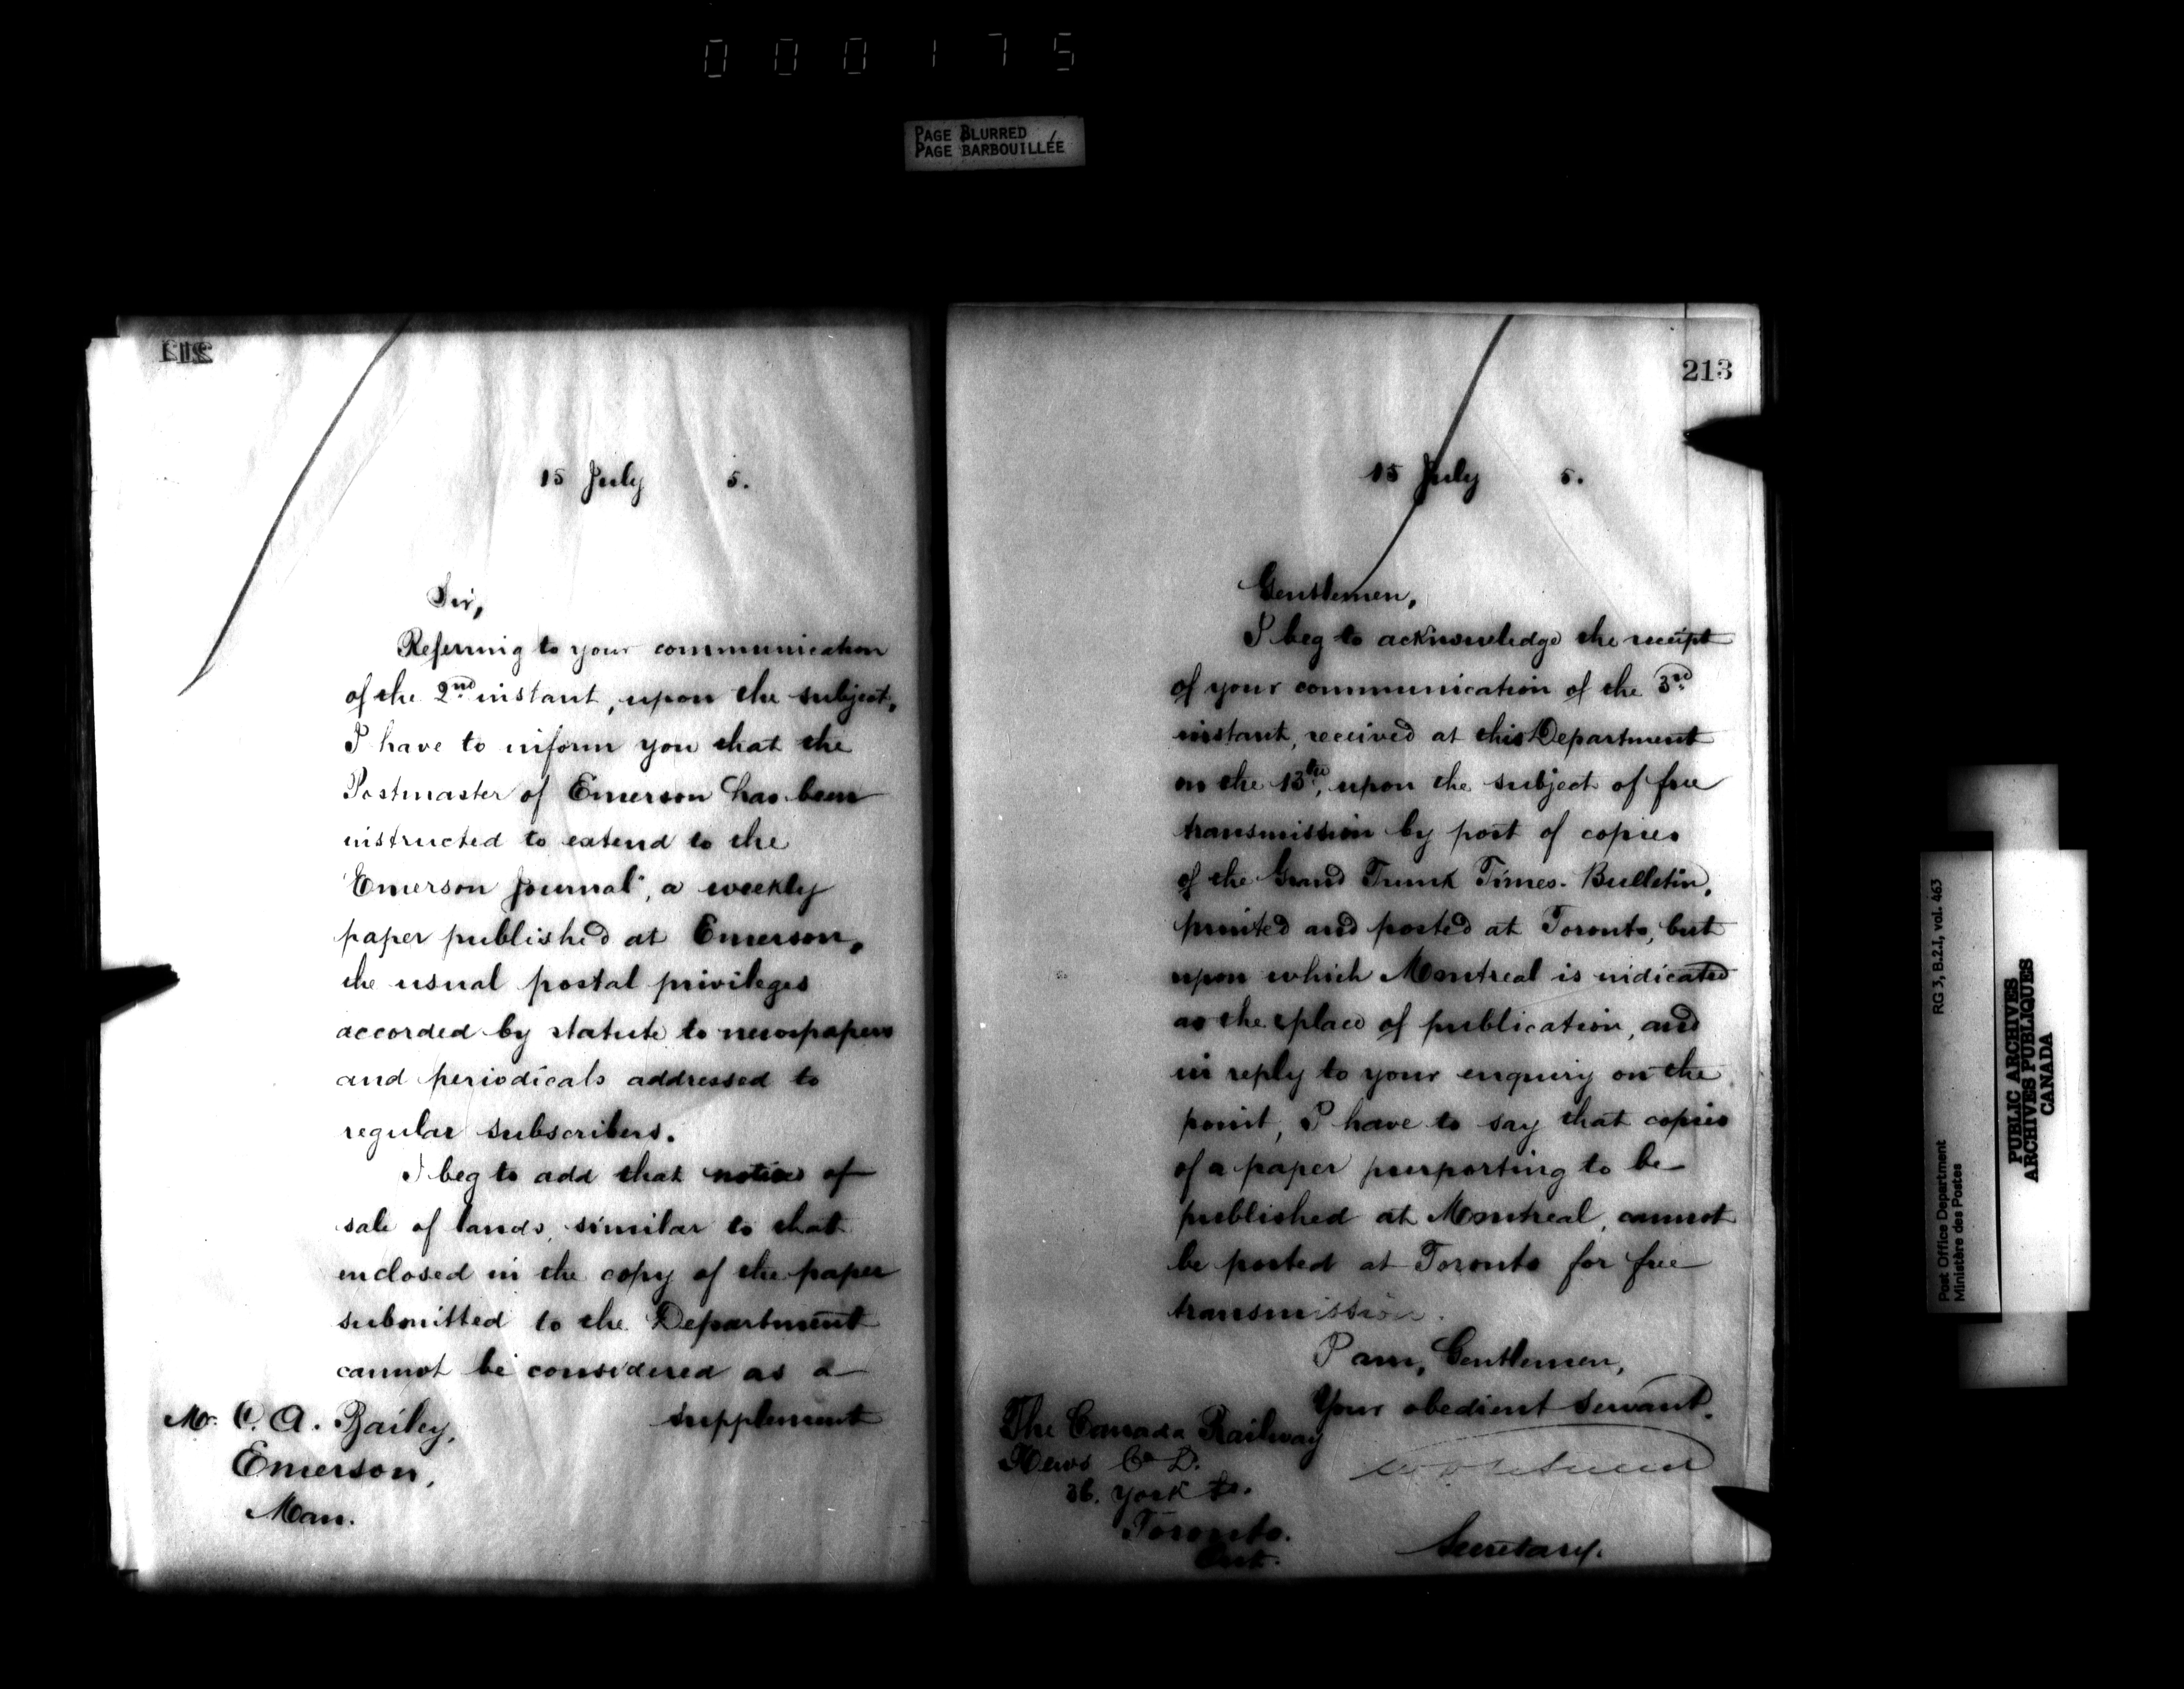 000175
PAGE BLURRED
PAGE BARBOUILLÉE
212
15 July 5.
Sir,
Referring to your communication
of the 2nd instant, upon the subject,
I have to inform you that the
Postmaster of Emerson has been
instructed to extend to the
"Emerson Journal", a weekly
paper published at Emerson,
the usual postal privileges
accorded by statute to newspapers
and periodicals addressed to
regular subscribers.
I beg to add that notices of
sale of lands, similar to that
enclosed in the copy of the paper
submitted to the Department
cannot be considered as a
supplement
Mr. C. A. Bailey,
Emerson,
Man.
213
15 July 5.
Gentlemen,
I beg to acknowledge the receipt
of your communication of the 3rd
instant, received at this Department
on the 13th, upon the subject of free
transmission by post of copies
of the Grand Trunk Times-Bulletin,
printed and posted at Toronto, but
upon which Montreal is indicated
as the place of publication, and
in reply to your enquiry on the
point, I have to say that copies
of a paper purporting to be
published at Montreal, cannot
be posted at Toronto for free
transmission.
I am, Gentlemen,
Your obedient Servant.
Secretary.
The Canada Railway
News Co
36. York St.
Toronto.
Ont.
Post Office Department
Ministère des Postes
RG 3, B.2.I, vol. 463
PUBLIC ARCHIVES
ARCHIVES PUBLIQUES
CANADA